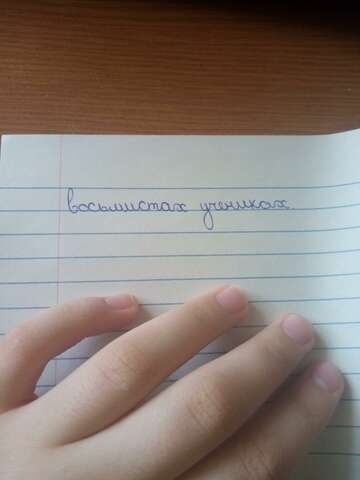 восьмистах учениках.